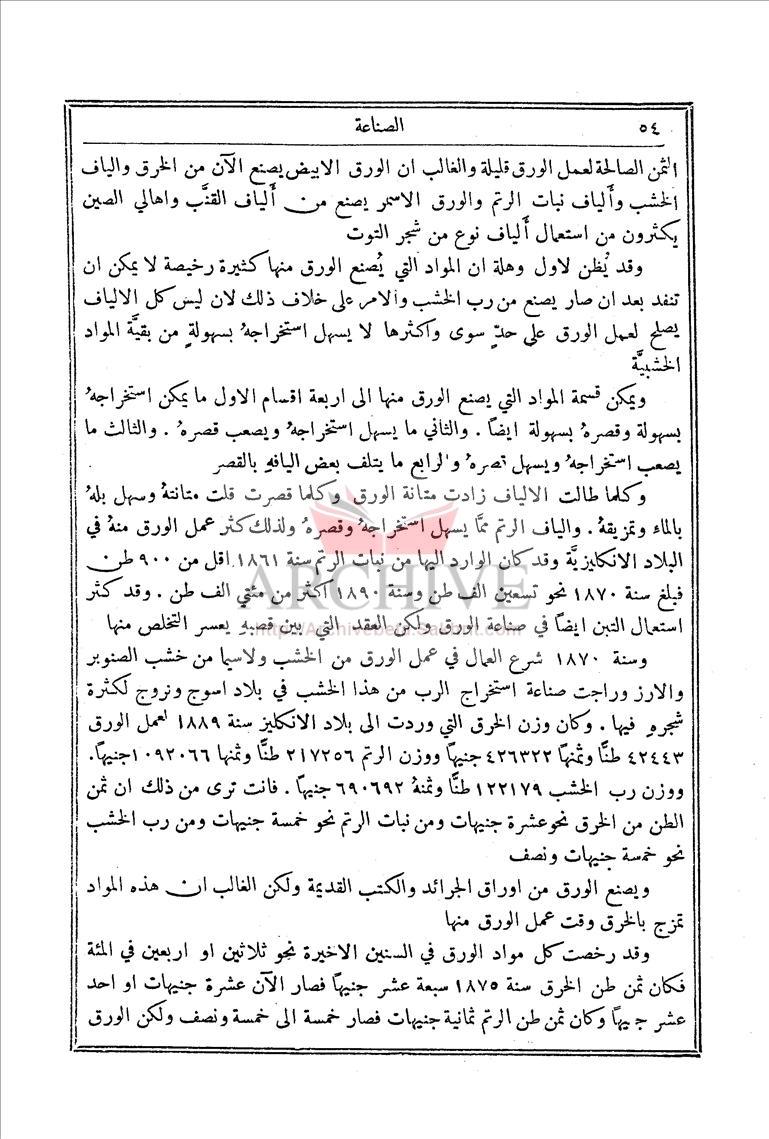 ٥٤
الصناعة
الثمن الصالحة لعمل الورق قليلة والغالب ان الورق الابيض يصنع الآن من الخرق والياف
الخشب وأَلياف نبات الرتم والورق الاسمر يصنع من أَلياف القنَّب واهالي الصين
يكثرون من استعمال أَلياف نوع من شجر التوت
وقد يُظن لاول وهلة ان المواد التي يُصنع الورق منها كثيرة رخيصة لا يمكن ان
تنفد بعد ان صار يصنع من رب الخشب والامر على خلاف ذلك لان ليس كل الالياف
يصلح لعمل الورق على حدٍّ سوى واكثرها لا يسهل استخراجهُ بسهولةٍ من بقيَّة المواد
الخشبيَّة
ويمكن قسمة المواد التي يصنع الورق منها الى اربعة اقسام الاول ما يمكن استخراجهُ
بسهولة وقصرهُ بسهولة ايضاً . والثاني ما يسهل استخراجهُ ويصعب قصرهُ . والثالث ما
يصعب استخراجهُ ويسهل قصرهُ والرابع ما يتلف بعض اليافهِ بالقصر
وكلما طالت الالياف زادت متانة الورق وكلما قصرت قلت متانتهُ وسهل بلهُ
بالماء وتمزيقهُ . والياف الرتم ممَّا يسهل استخراجهُ وقصرهُ ولذلك كثر عمل الورق منهُ في
البلاد الانكليزيَّة وقد كان الوارد اليها من نبات الرتم سنة ١٨٦١ اقل من ٩٠٠ طن
فبلغ سنة ١٨٧٠ نحو تسعين الف طن وسنة ١٨٩٠ اكثر من مئتي الف طن . وقد كثر
استعمال التبن ايضاً في صناعة الورق ولكن العقد التي بين قصبهِ يعسر التخلص منها
وسنة ١٨٧٠ شرع العمال في عمل الورق من الخشب ولاسيما من خشب الصنوبر
والارز وراجت صناعة استخراج الرب من هذا الخشب في بلاد اسوج ونروج لكثرة
شجرهِ فيها . وكان وزن الخرق التي وردت الى بلاد الانكليز سنة ١٨٨٩ لعمل الورق
٤٢٤٤٣ طنًّا وثمنها ٤٢٦٣٢٢ جنيهاً ووزن الرتم ٢١٧٢٥٦ طنًّا وثمنها ١٠٩٢٠٦٦جنيهاً.
ووزن رب الخشب ١٢٢١٧٩ طنًّا وثمنهُ ٦٩٠٦٩٢ جنيهاً . فانت ترى من ذلك ان ثمن
الطن من الخرق نحو عشرة جنيهات ومن نبات الرتم نحو خمسة جنيهات ومن رب الخشب
نحو خمسة جنيهات ونصف
ويصنع الورق من اوراق الجرائد والكتب القديمة ولكن الغالب ان هذه المواد
تمزج بالخرق وقت عمل الورق منها
وقد رخصت كل مواد الورق في السنين الاخيرة نحو ثلاثين او اربعين في المئة
فكان ثمن طن الخرق سنة ١٨٧٥ سبعة عشر جنيهاً فصار الآن عشرة جنيهات او احد
عشر جنيهاً وكان ثمن طن الرتم ثمانية جنيهات فصار خمسة الى خمسة ونصف ولكن الورق
ARCHIVE